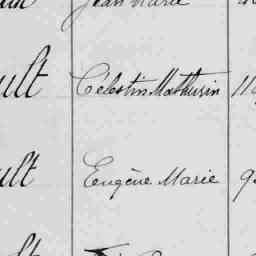 Jean Marie
ult Célestin Mathurin 11
ult Eugène Marie 9